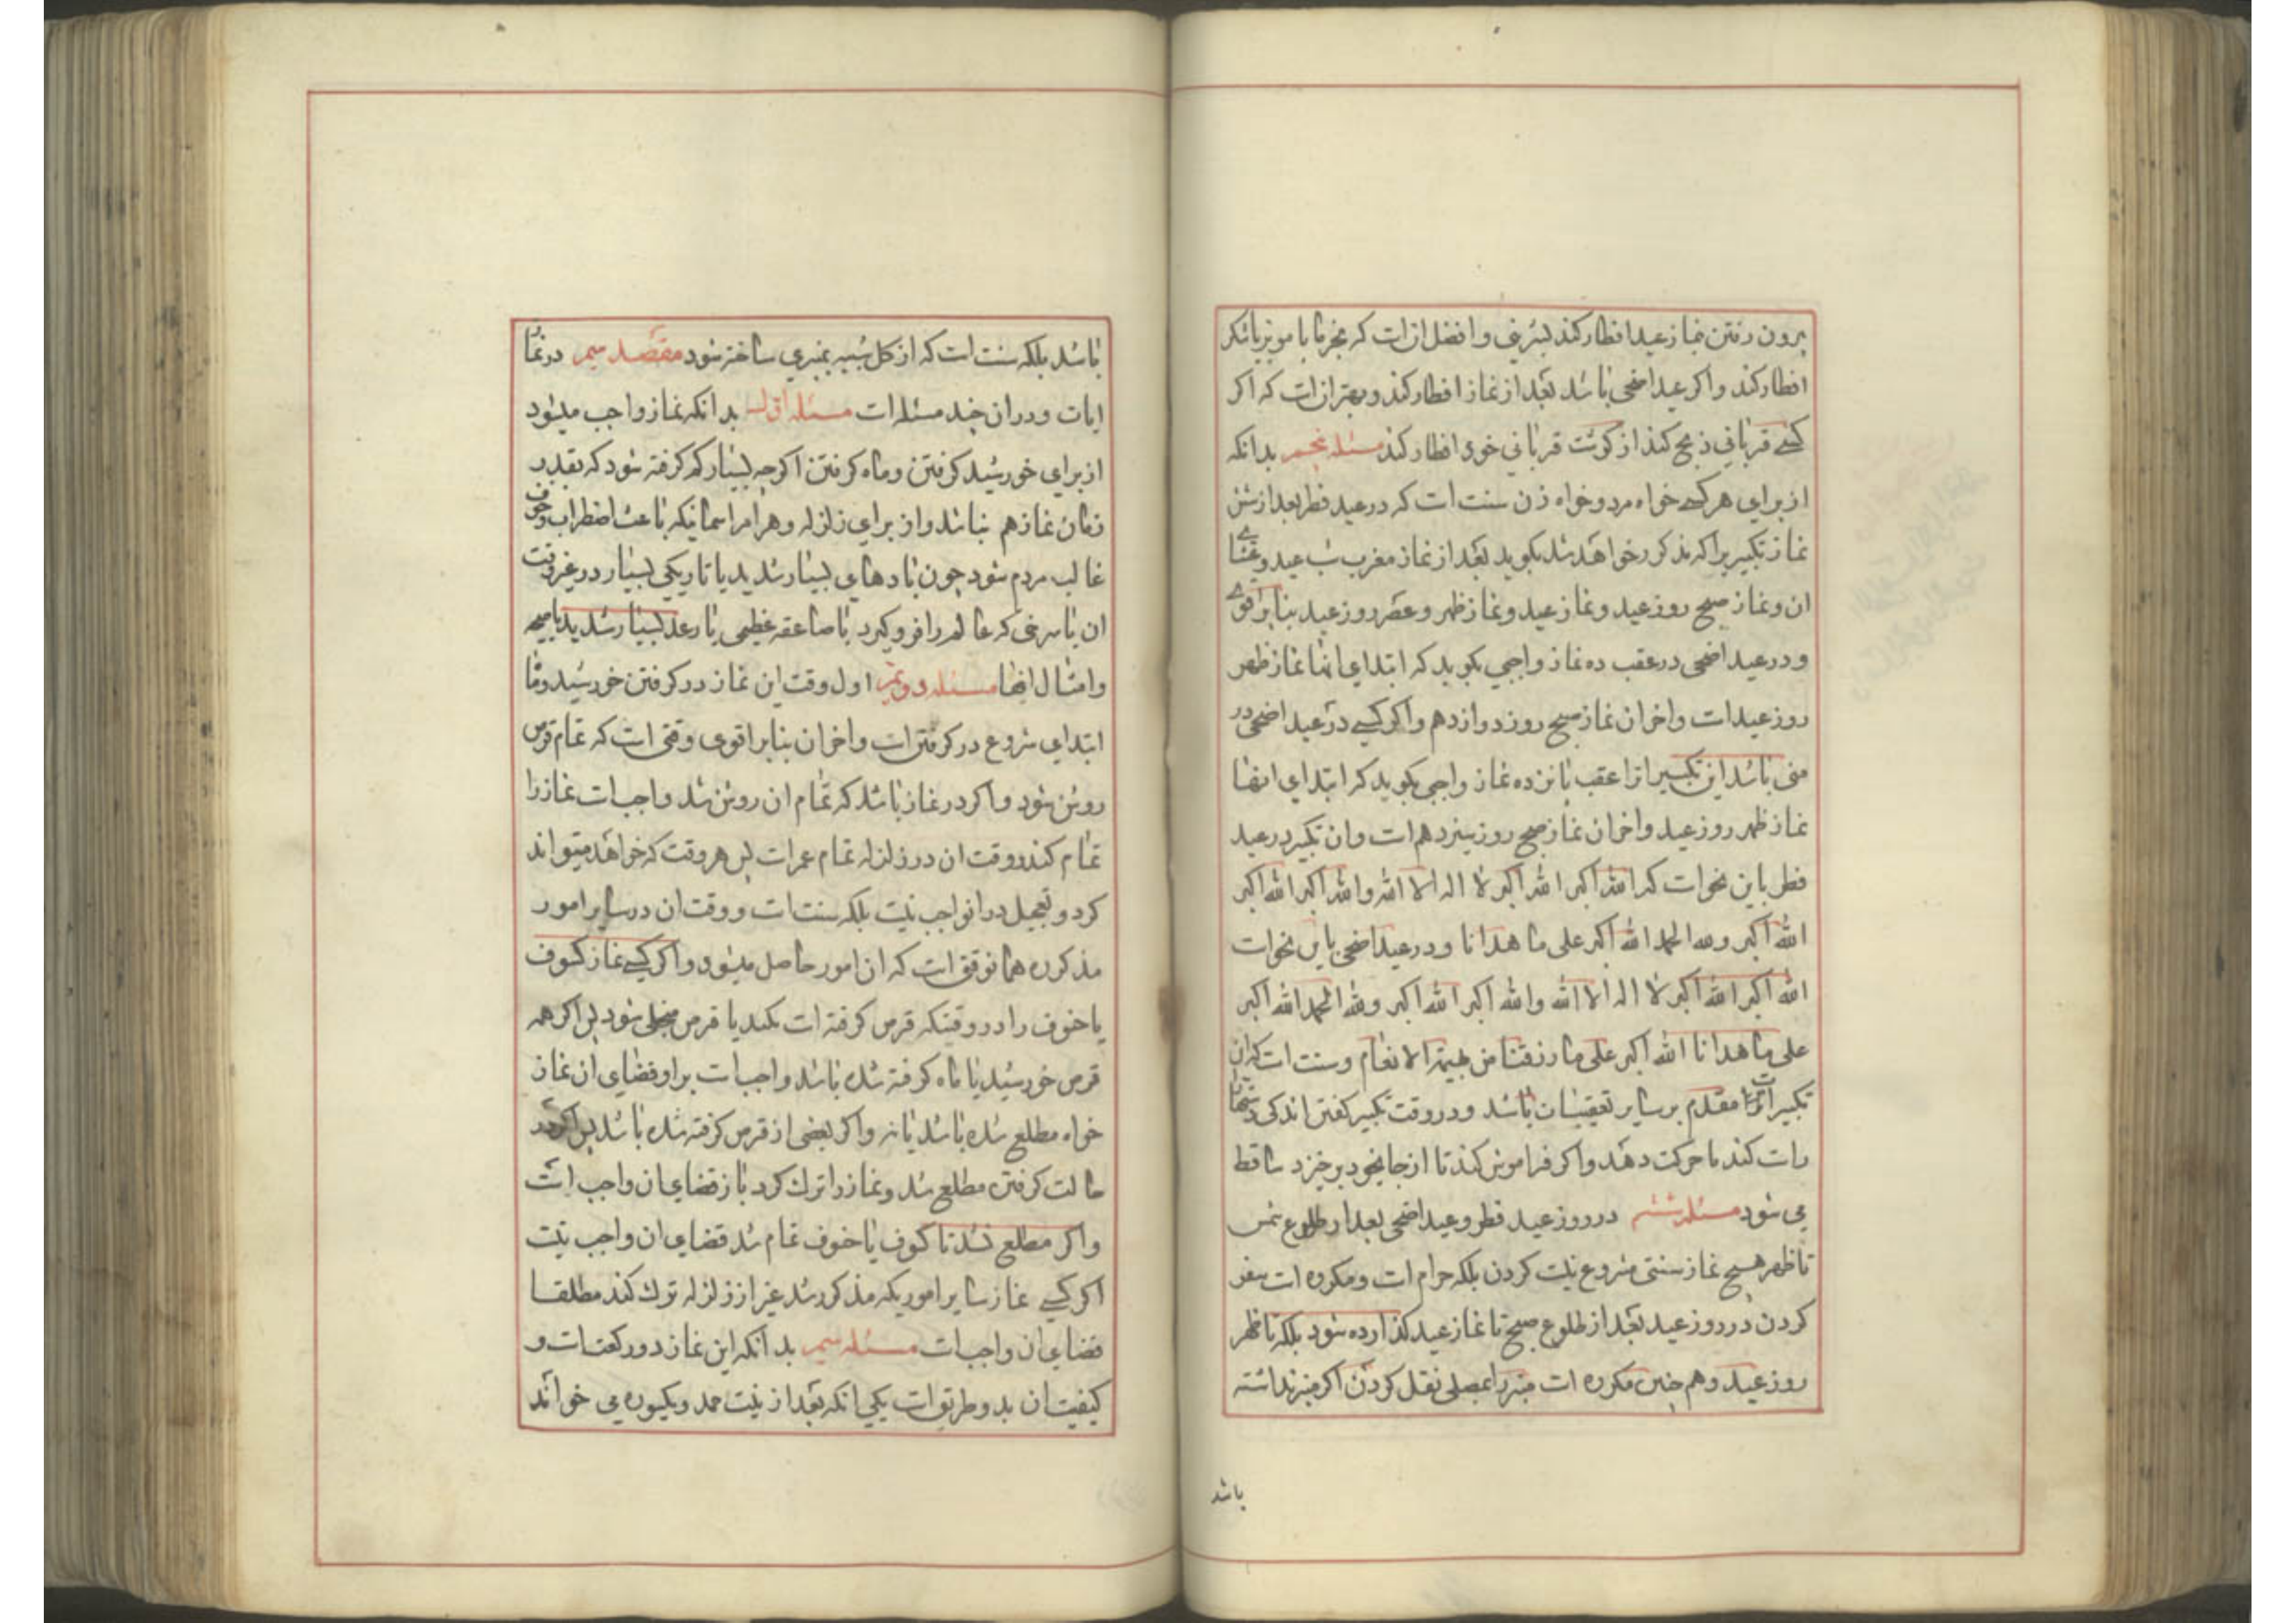 برون رفتن بنماز عید افطار کند بشیرینی و افضل ان است که بخرما یا مویز یا شکر
افطار کند و اکر عید اضحی باشد بعد از نماز افطار کند و بهتر ان است که اکر
کسے قربانی ذبح کند از کوشت قربانی خود افطار کند مسئله پنجم بدانکه
از برای هر کسے خواه مرد و خواه زن سنت است که در عید فطر بعد از شش
نماز تکبیر یرا که مذکور خواهد شد بکوید بعد از نماز مغرب شب عید و عشای
ان و نماز صبح روز عید و نماز عید و نماز ظهر و عصر روز عید بنا بر اقوی
و در عید اضحی در عقب ده نماز واجبی بکوید که ابتدای انها نماز ظهر
روز عید است و اخر ان نماز صبح روز دوازدهم و اکر کسے در عید اضحی در
منی باشد این تکبیر را عقب پانزده نماز واجبی بکوید که ابتدای انها
نماز ظهر روز عید و اخر ان نماز صبح روز سیزدهم است و ان تکبیر در عید
فطر باین نحو است که الله اکبر الله اکبر لا اله الا الله والله اکبر الله اکبر
الله اکبر ولله الحمد الله اکبر علی ما هدانا و در عید اضحی باین نحو است
الله اکبر الله اکبر لا اله الا الله والله اکبر الله اکبر ولله الحمد الله اکبر
علی ما هدانا الله اکبر علی ما رزقنا من بهیمة الانعام و سنت است که این
تکبیرات مقدم بر سایر تعقیبات باشد و در وقت تکبیر کفتن اندکی دستها
راست کند یا حرکت دهد و اکر فراموش کند تا از جای خود برخیزد ساقط
می شود مسئله ششم در روز عید فطر و عید اضحی بعد از طلوع شمس
تا ظهر هیچ نماز سنتی مشروع نیست کردن بلکه حرام است و مکروه است سفر
کردن در روز عید بعد از طلوع صبح تا نماز عید کذارده شود بلکه تا ظهر
روز عید و هم چنین مکروه است منبر را بمصلی نقل کردن اکر منبر نداشته
باشد
باشد بلکه سنت است که از کل شبیه بمنبری ساخته شود مقصد سیم در نماز
ایات و در ان چند مسئله است مسئله اول بدانکه نماز واجب میشود
از برای خورشید کرفتن و ماه کرفتن اکرچه بسیار کم کرفته شود که بقدر
زمان نماز هم نباشد و از برای زلزله و هر امر اسمانیکه باعث اضطراب و خوف
غالب مردم شود چون بادهای بسیار شدید یا تاریکی بسیار در غیر وقت
ان یا سرخی که عالم را فرو کیرد یا صاعقه عظیمی یا رعد بسیار شدید یا صیحه
و امثال اینها مسئله دویم اول وقت این نماز در کرفتن خورشید و ماه
ابتدای شروع در کرفتن است و اخر ان بنا بر اقوی وقتی است که تمام قرص
روشن شود و اکر در نماز باشد که تمام ان روشن شد واجب است نماز را
تمام کند و وقت ان در زلزله تمام عمر است پس هر وقت که خواهد میتواند
کرد و تعجیل در ان واجب نیست بلکه سنت است و وقت ان در سایر امور
مذکوره همان وقتی است که ان امور حاصل میشود و اکر کسے نماز کسوف
یا خسوف را در وقتیکه قرص کرفته است نکند یا قرص منجلی شود پس اکر همه
قرص خورشید یا ماه کرفته شده باشد واجب است بر او قضای ان نماز
خواه مطلع شده باشد یا نه و اکر بعضی از قرص کرفته شده باشد پس اکر در
حالت کرفتن مطلع شد و نماز را ترک کرد باز قضای ان واجب است
و اکر مطلع نشد تا کسوف یا خسوف تمام شد قضای ان واجب نیست
اکر کسے نماز سایر اموریکه مذکور شد غیر از زلزله ترک کند مطلقا
قضای ان واجب است مسئله سیم بدانکه این نماز دو رکعت است و
کیفیت ان بدو طریق است یکی انکه بعد از نیت حمد و یکسوره می خواند